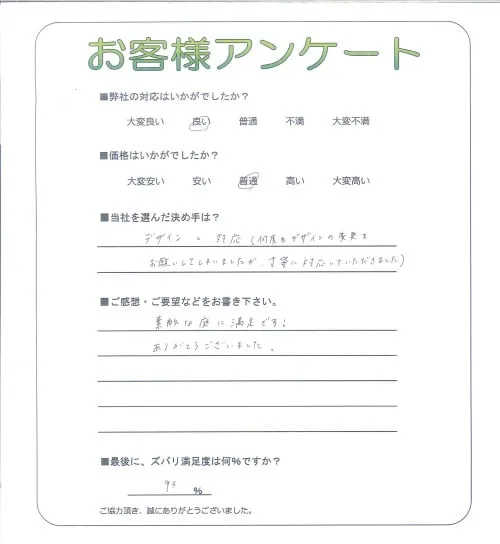 お客様アンケート
■弊社の対応はいかがでしたか?
大変良い 良い 普通 不満 大変不満
■価格はいかがでしたか?
大変安い 安い 普通 高い 大変高い
■当社を選んだ決め手は?
デザインと対応(何度もデザインの変更を
お願いしてしまいましたが、丁寧に対応していただきました)
■ご感想・ご要望などをお書き下さい。
素敵な庭に満足です!
ありがとうございました。
■最後に、ズバリ満足度は何%ですか?
95 %
ご協力頂き、誠にありがとうございました。